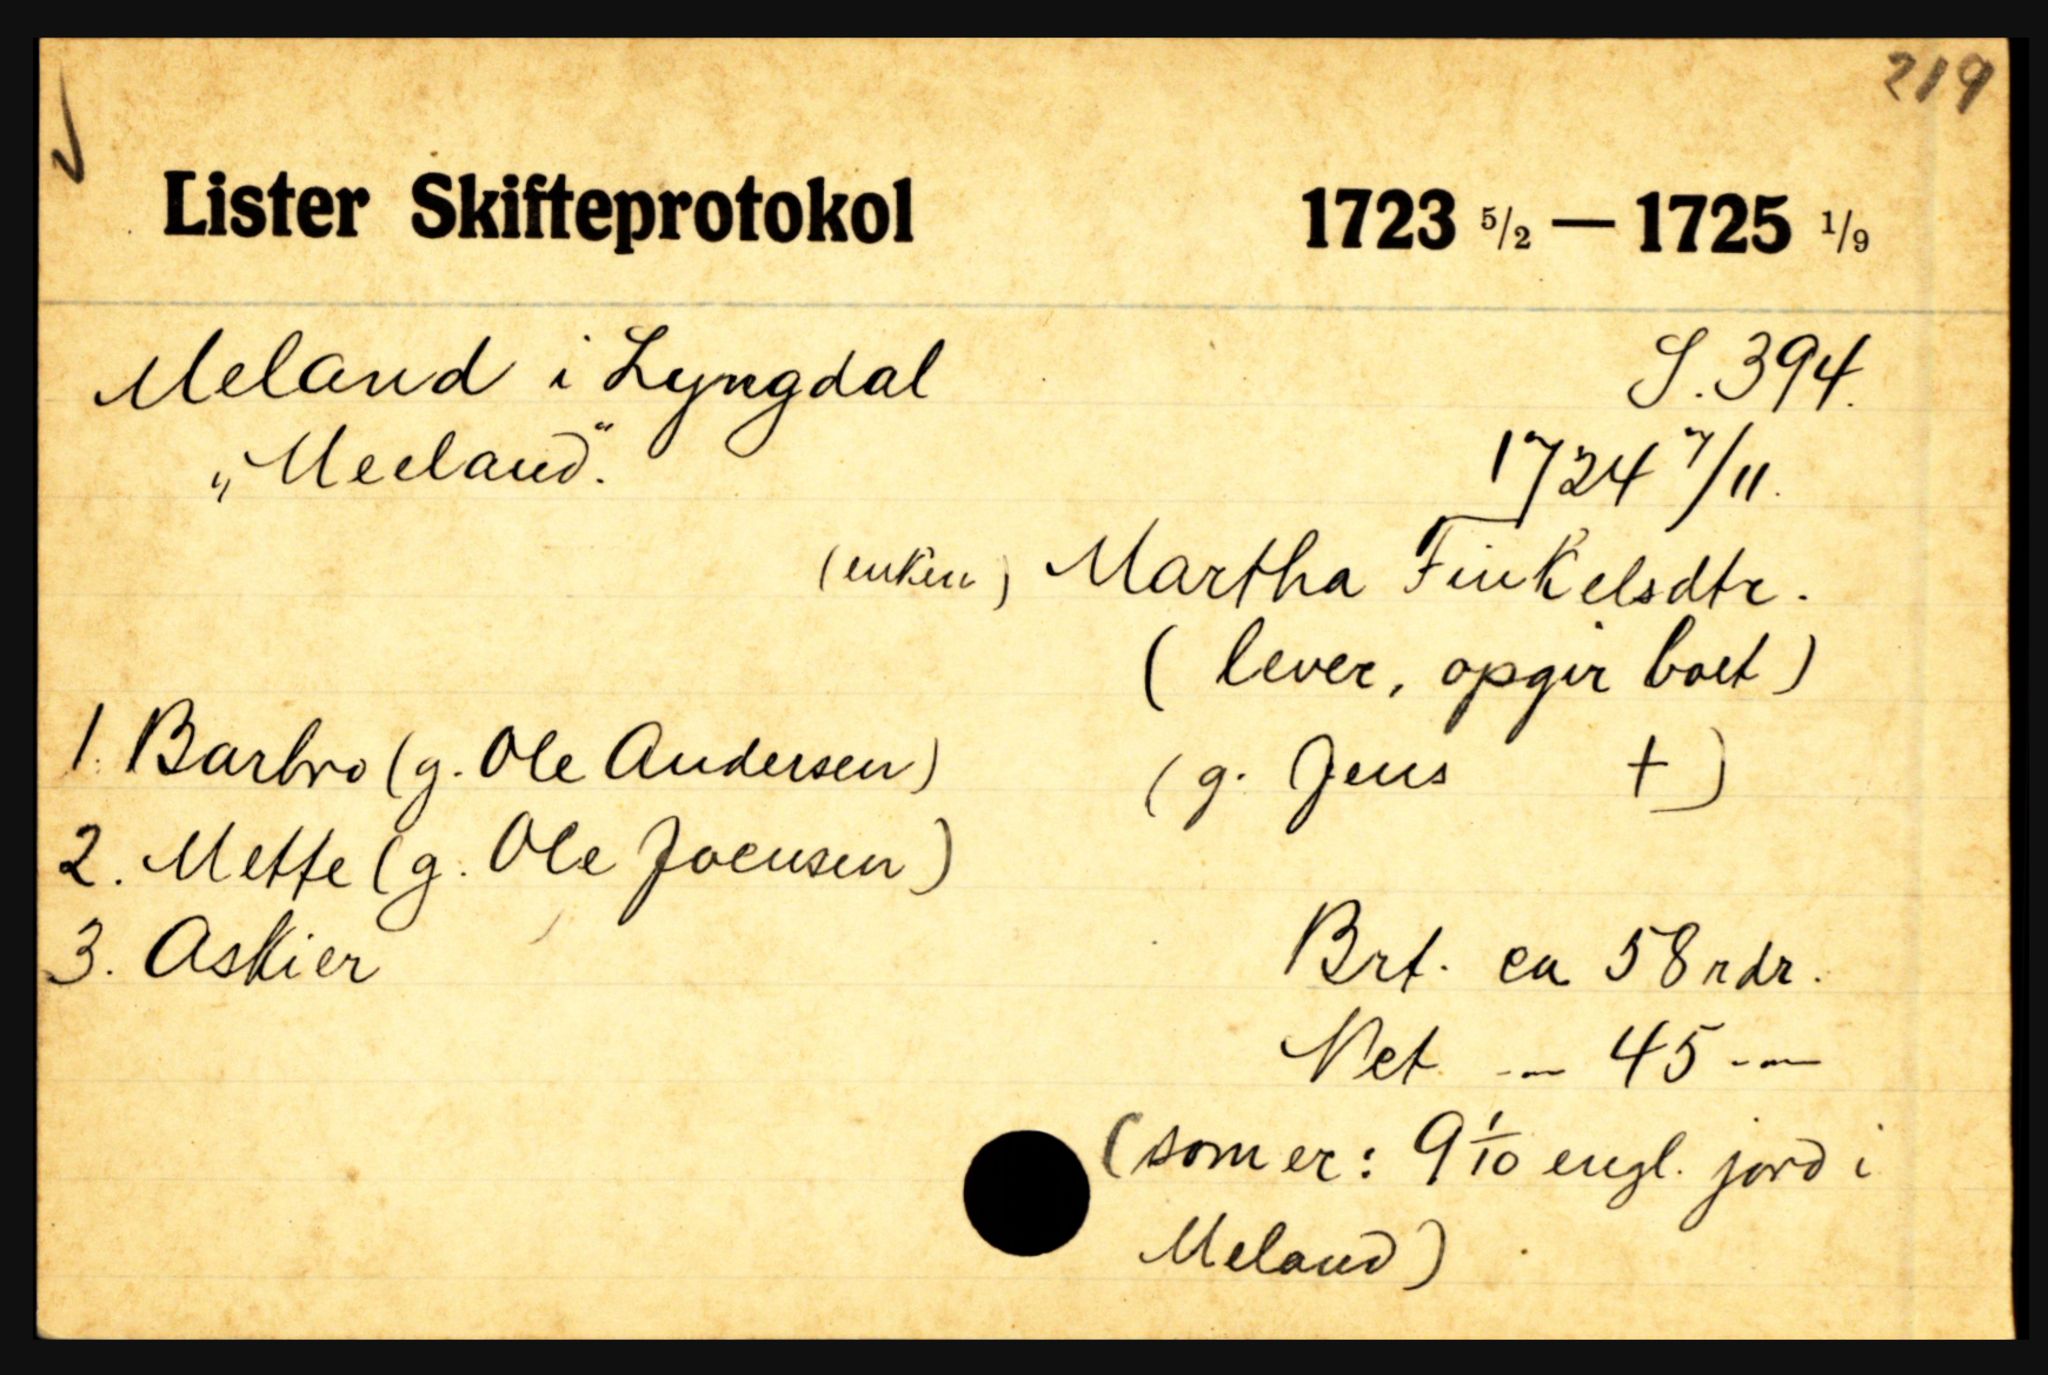 219
Lister Skifteprotokol 1723 5/2 — 1725 1/9
Meland i Lyngdal S. 394.
„Meeland“. 1724 7/11.
(enken) Martha Finkelsdtr.
(lever, opgir boet)
1. Barbro (g. Ole Andersen) (g. Jens +)
2. Mette (g. Ole Joensen)
3. Askier Brt. ca 58 rdr.
Net — 45 —
(som er: 9 1/10 engl. jord i
Meland)